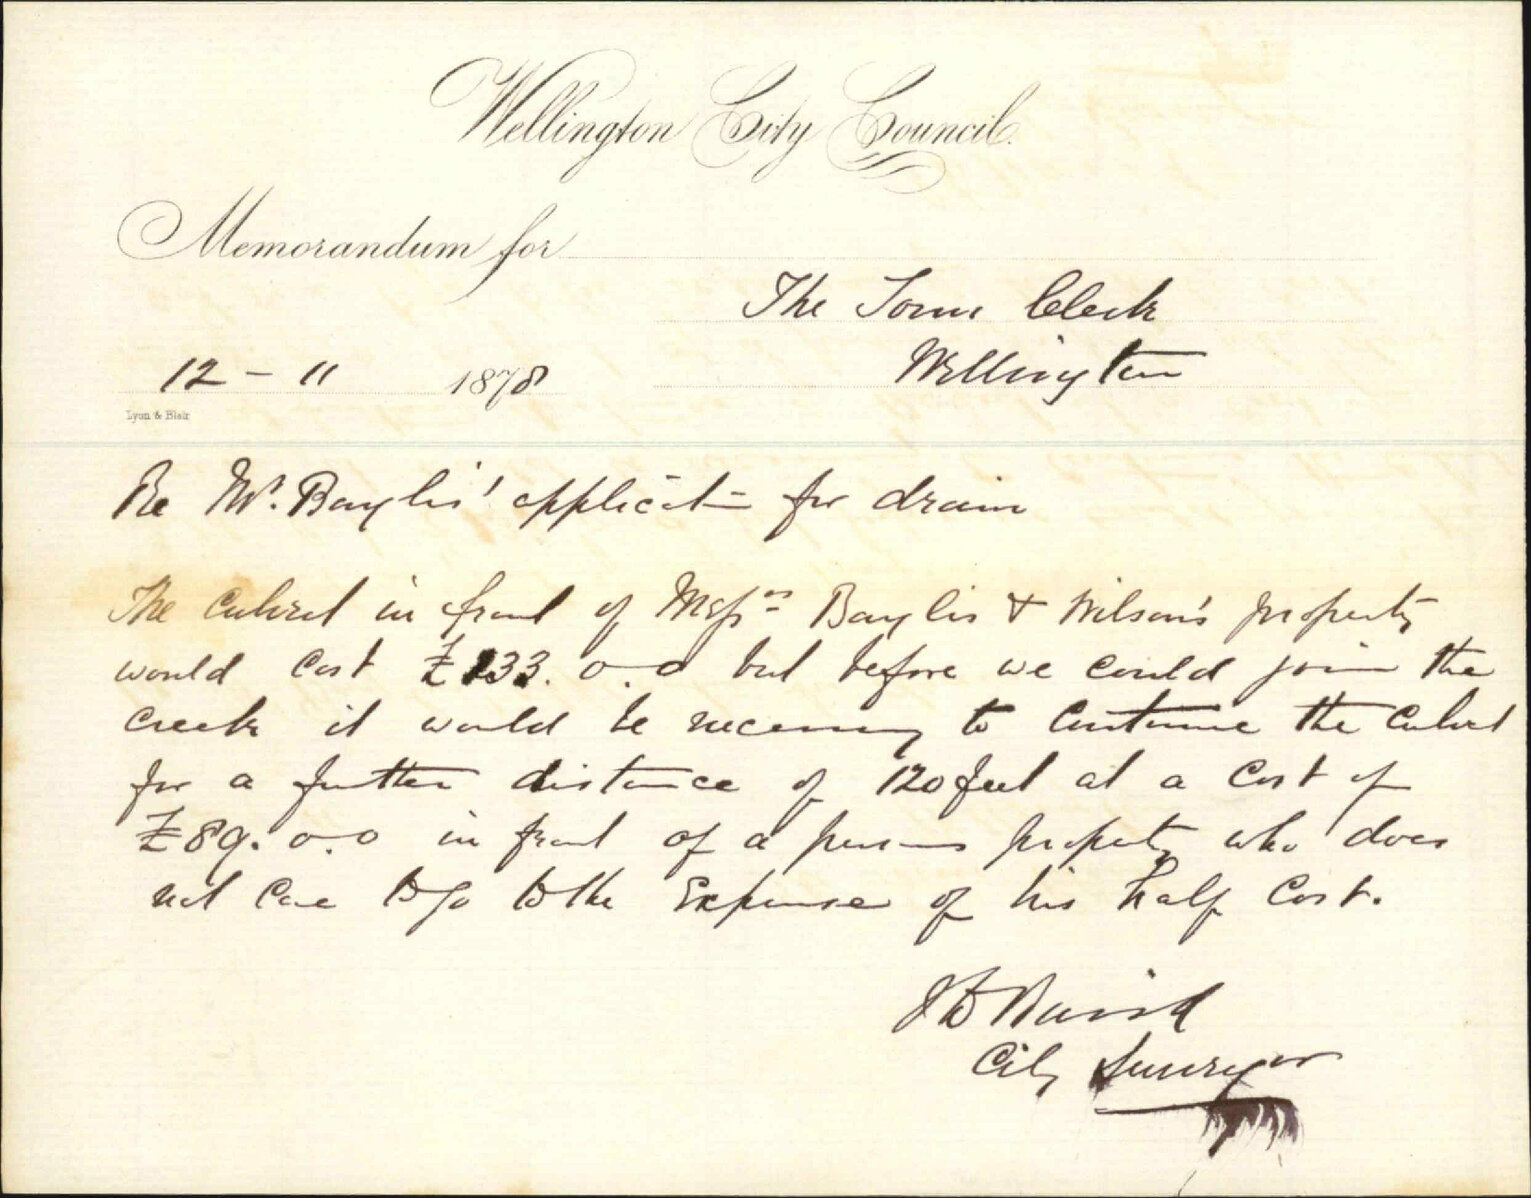 Wellington City Council.
Memorandum for
The Town Clerk
Wellington
12 - 11 1878
Lyon & Blair
Re Mr. Baylis' applicatn for drain
The Culvert in front of Messrs Baylis & Wilson's property
would cost £133. 0. 0 but before we could join the
creek it would be necessary to continue the Culvert
for a further distance of 120 feet at a cost of
£89. 0. 0 in front of a persons property who does
not care to go to the Expense of his half Cost.
J D Baird
City Surveyor